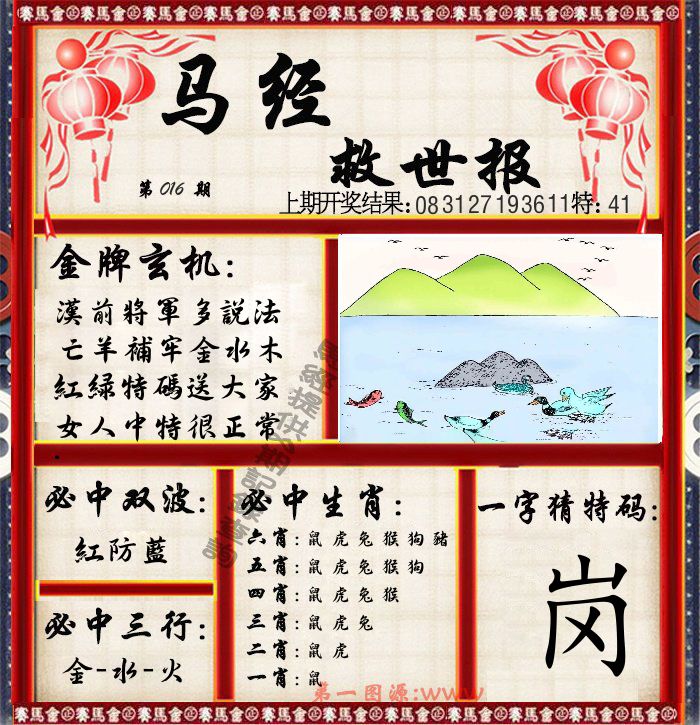 賽馬會 賽馬會 賽馬會 賽馬會 賽馬會 賽馬會 賽馬會 賽馬會 賽馬會
马经
救世报
第 016 期
上期开奖结果:083127193611特:41
金牌玄机:
漢前將軍多説法
亡羊補牢金水木
紅綠特碼送大家
女人中特很正常
必中双波:
紅防藍
必中三行:
金-水-火
必中生肖:
六肖:鼠虎兔猴狗豬
五肖:鼠虎兔猴狗
四肖:鼠虎兔猴
三肖:鼠虎兔
二肖:鼠虎
一肖:鼠
一字猜特码:
岗
第一图源:www